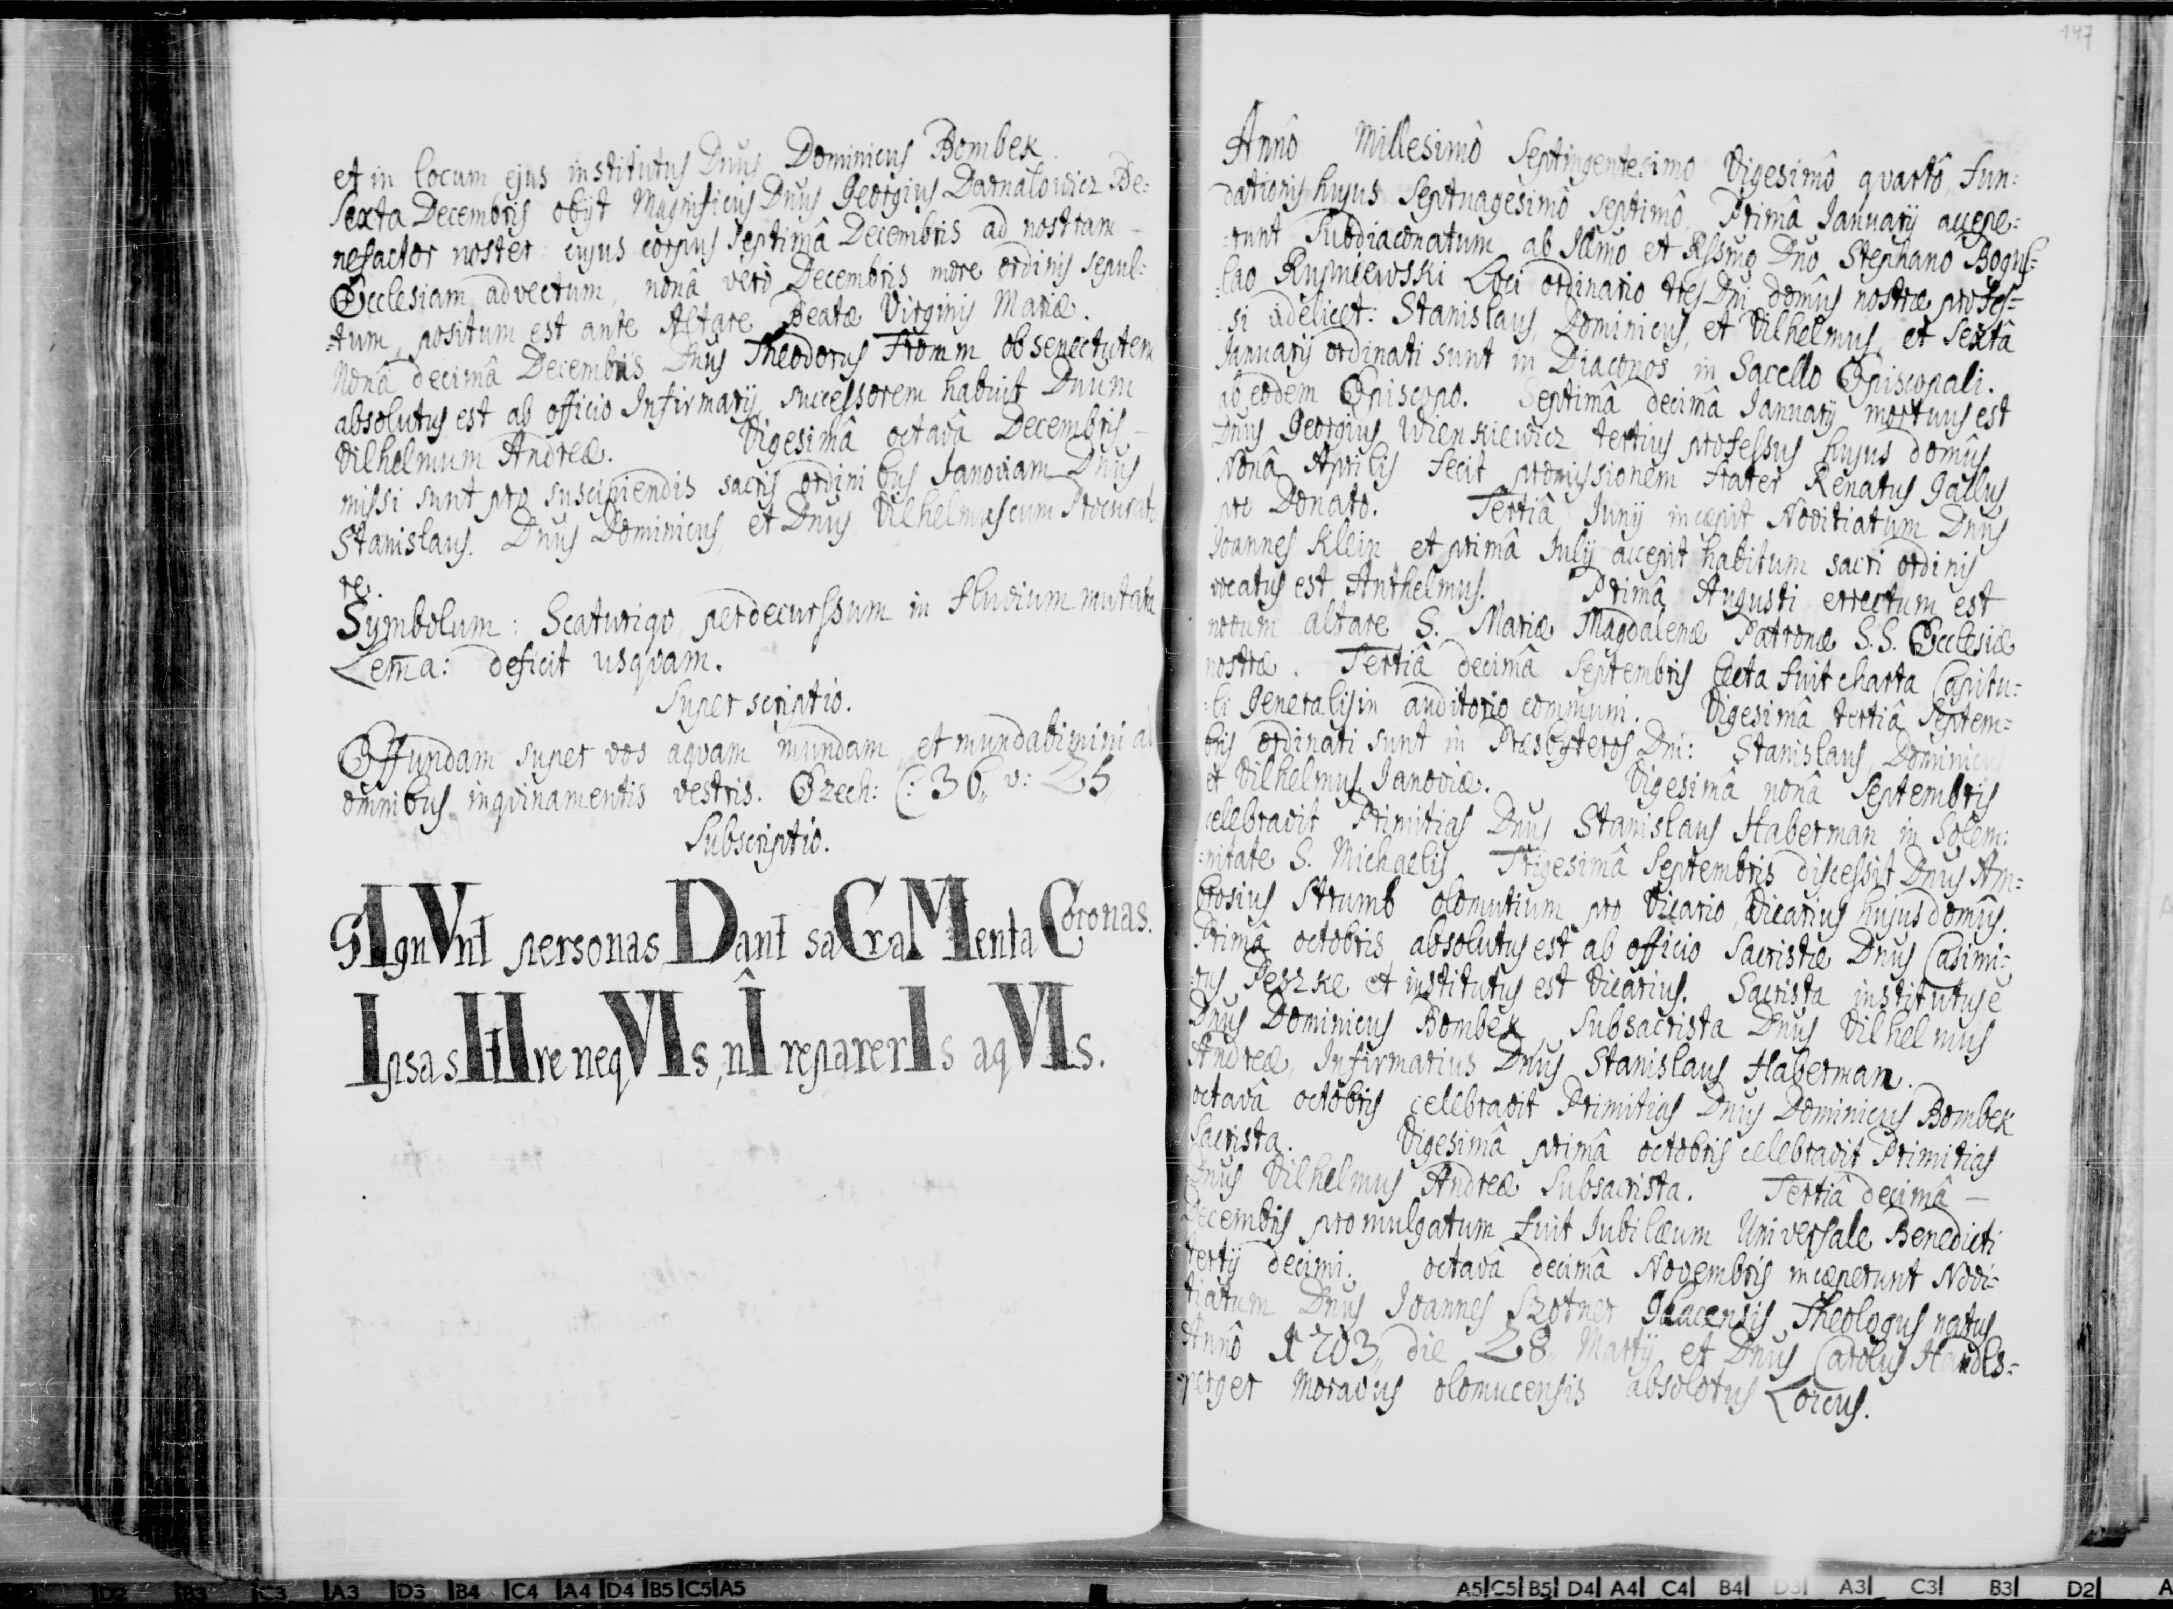 et in locum ejus institutus Dnus Dominicus Bombek
Sexta Decembris obijt Magnificus Dnus Georgius Darnalowicz Be:
nefactor noster: cujus corpus septimâ Decembris ad nostram
Ecclesiam advectum, nonâ verò Decembris more ordinis sepul:
:tum, positum est ante Altare Beatæ Virginis Mariæ.
Nonâ decimâ Decembris Dnus Theodorus Fromm ob senectutem
absolutus est ab officio Infirmarij, successorem habuit Dnum
Vilhelmum Andreæ. Vigesimâ octavâ Decembris
missi sunt pro suscipiendis sacris ordinibus Janoviam Dnus
Stanislaus. Dnus Dominicus, et Dnus Vilhelmus cum Procurato
re.
Symbolum: Scaturigo per decurssum in fluvium mutata
Lem̄a: deficit usqvam.
Super scriptio.
Effundam super vos aqvam mundam et mundabimini ab
omnibus inqvinamentis vestris. Ezech: C: 36,, v: 25
Subscriptio.
GIgnVnt personas, Dant saCraMenta Coronas.
Ipsa sItIre neqVIs, nÎ repararerIs aqVIs.
147
Annô Millesimô Septingentesimo Vigesimô qvartô, fun:
dationis hujus Septuagesimô septimô. Primâ Ianuarij accepe:
:runt Subdiaconatum ab Illmo et Rssmo Dno Stephano Bogus:
:lao Rupniewski Loci ordinario tres Dni domûs nostræ profes:
:si videlicet: Stanislaus, Dominicus, et Vilhelmus, et sextâ
Ianuarij ordinati sunt in Diaconos in Sacello Episcopali.
ab eodem Episcopo. Septimâ decimâ Ianuarij mortuus est
Dnus Georgius Wienkiewicz tertius professus hujus domûs
Nonâ Aprilis fecit promissionem frater Renatus Gallus
pro Donato. Tertiâ Iunij incœpit Novitiatum Dnus
Joannes Klein et primâ Julij accepit habitum sacri ordinis
vocatus est Anthelmus. Primâ Augusti errectum est
novum altare S. Mariæ Magdalenæ Patronæ S.S. Ecclesiæ
nostræ. Tertiâ decimâ Septembris lecta fuit charta Capitu:
:li Generalis in auditorio communi. Vigesimâ tertiâ Septem:
bris ordinati sunt in Præsbyteros Dni: Stanislaus, Dominicus
et Vilhelmus, Janoviæ. Vigesimâ nonâ Septembris
celebravit Primitias Dnus Stanislaus Haberman in Solem:
:nitate S. Michaelis Trigesimâ Septembris discessit Dnus Am:
brosius Strumb olomutium pro Vicario, Vicarius hujus domûs.
Primâ octobris absolutus est ab officio Sacristæ Dnus Casimi:
:rus Peszke et institutus est Vicarius. Sacrista institutus ē
Dnus Dominicus Bombek Subsacrista Dnus Vilhelmus
Andreæ, Infirmarius Dnus Stanislaus Haberman.
octavâ octobris celebravit Primitias Dnus Dominicus Bombek
Sacrista. Vigesimâ primâ octobris celebravit Primitias
Dnus Vilhelmus Andreæ Subsacrista. Tertiâ decimâ
Decembris promulgatum fuit Iubilæum Universale Benedicti
tertij decimi. octavâ decimâ Novembris incæperunt Novi:
tiatum Dnus Joannes Theologus natus
Annô 1703,, die 28,, Martij et Dnus Carolus Handls:
perger Moravus olomucensis absolotus Loicus.